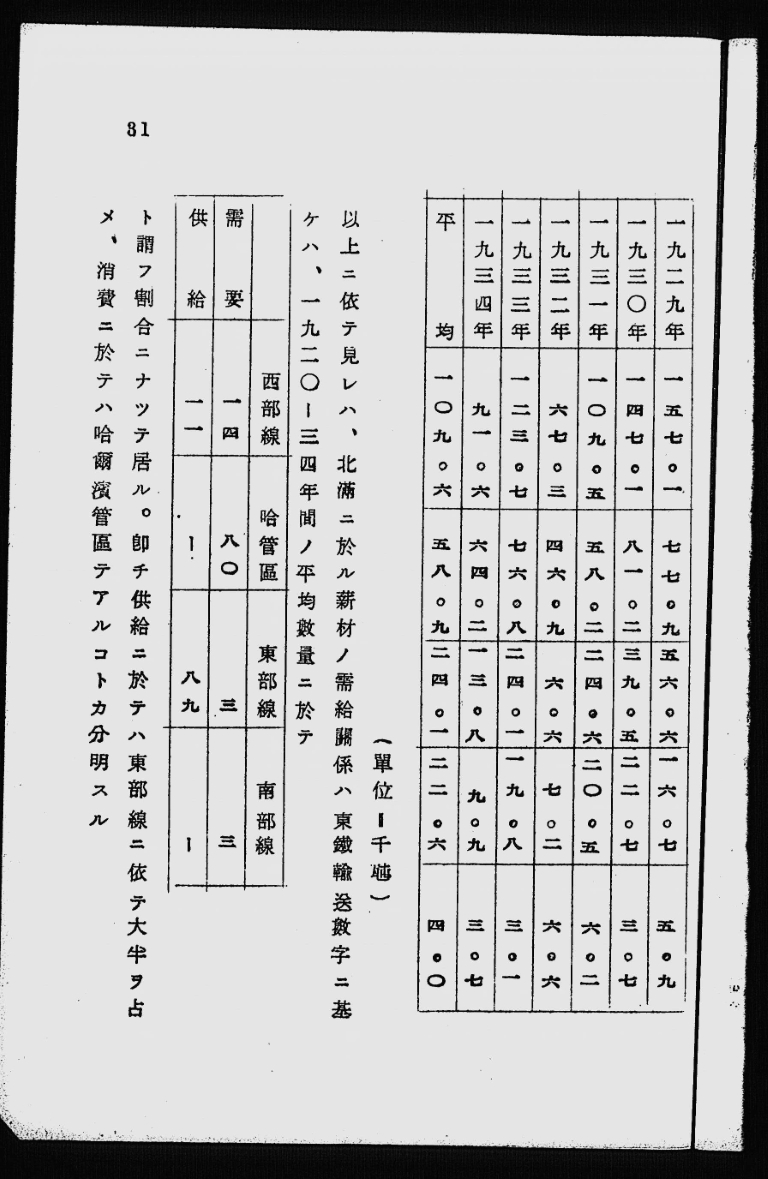 81
一九二九年 一五七。一 七七。九 五六。六 一六。七 五。九
一九三〇年 一四七。一 八一。二 三九。五 二二。七 三。七
一九三一年 一〇九。五 五八。二 二四。六 二〇。五 六。二
一九三二年 六七。三 四六。九 六。六 七。二 六。六
一九三三年 一二三。七 七六。八 二四。一 一九。八 三。一
一九三四年 九一。六 六四。二 一三。八 九。九 三。七
平均 一〇九。六 五八。九 二四。一 二二。六 四。〇
(單位ー千瓲)
以上ニ依テ見レハ、北滿ニ於ル薪材ノ需給關係ハ東鐵輸送數字ニ基
ケハ、一九二〇ー三四年間ノ平均數量ニ於テ
西部線 哈管區 東部線 南部線
需要 一四 八〇 三 三
供給 一一 ー 八九 ー
ト謂フ割合ニナツテ居ル。卽チ供給ニ於テハ東部線ニ依テ大半ヲ占
メ、消費ニ於テハ哈爾濱管區テアルコトカ分明スル